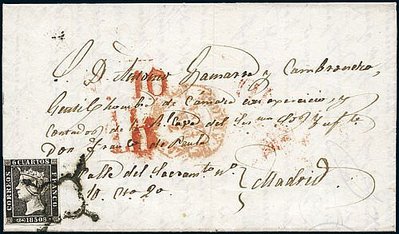 S. D. Antonio Gamarra y Cambronero,
Gentil hombre de Cámara con exercicio, y
Contador de la del Ser mo Sr Ynfte
Don Franco de Paula
Calle del Sacramto nº
10. cto 2º
Madrid
10
6 CUARTOS
CORREOS
FRANCO
1850